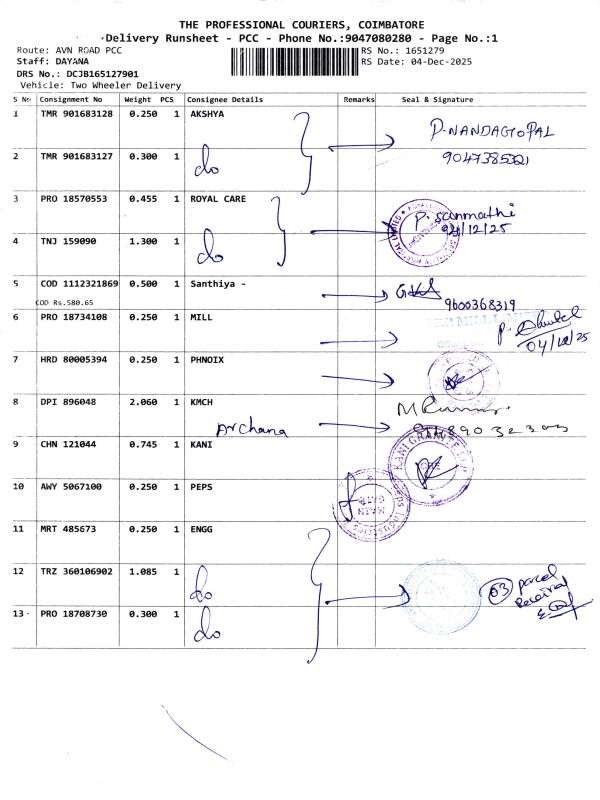 THE PROFESSIONAL COURIERS, COIMBATORE
Delivery Runsheet - PCC - Phone No.:9047080280 - Page No.:1
Route: AVN ROAD PCC
RS No.: 1651279
Staff: DAYANA
RS Date: 04-Dec-2025
DRS No.: DCJB165127901
Vehicle: Two Wheeler Delivery
S No Consignment No Weight PCS Consignee Details Remarks Seal & Signature
1 TMR 901683128 0.250 1 AKSHYA
P.NANDAGOPAL
2 TMR 901683127 0.300 1 do
9047385321
3 PRO 18570553 0.455 1 ROYAL CARE
P. sanmathi
4 TNJ 159090 1.300 1 do
5 COD 1112321869 0.500 1 Santhiya -
COD Rs.580.65
9600368319
6 PRO 18734108 0.250 1 MILL
04/12/25
7 HRD 80005394 0.250 1 PHNOIX
8 DPI 896048 2.060 1 KMCH
Archana
9 CHN 121044 0.745 1 KANI
KANI GRANITE
10 AWY 5067100 0.250 1 PEPS
MAIN GATE
11 MRT 485673 0.250 1 ENGG
12 TRZ 360106902 1.085 1 do
03 parcel
Received
13 PRO 18708730 0.300 1 do